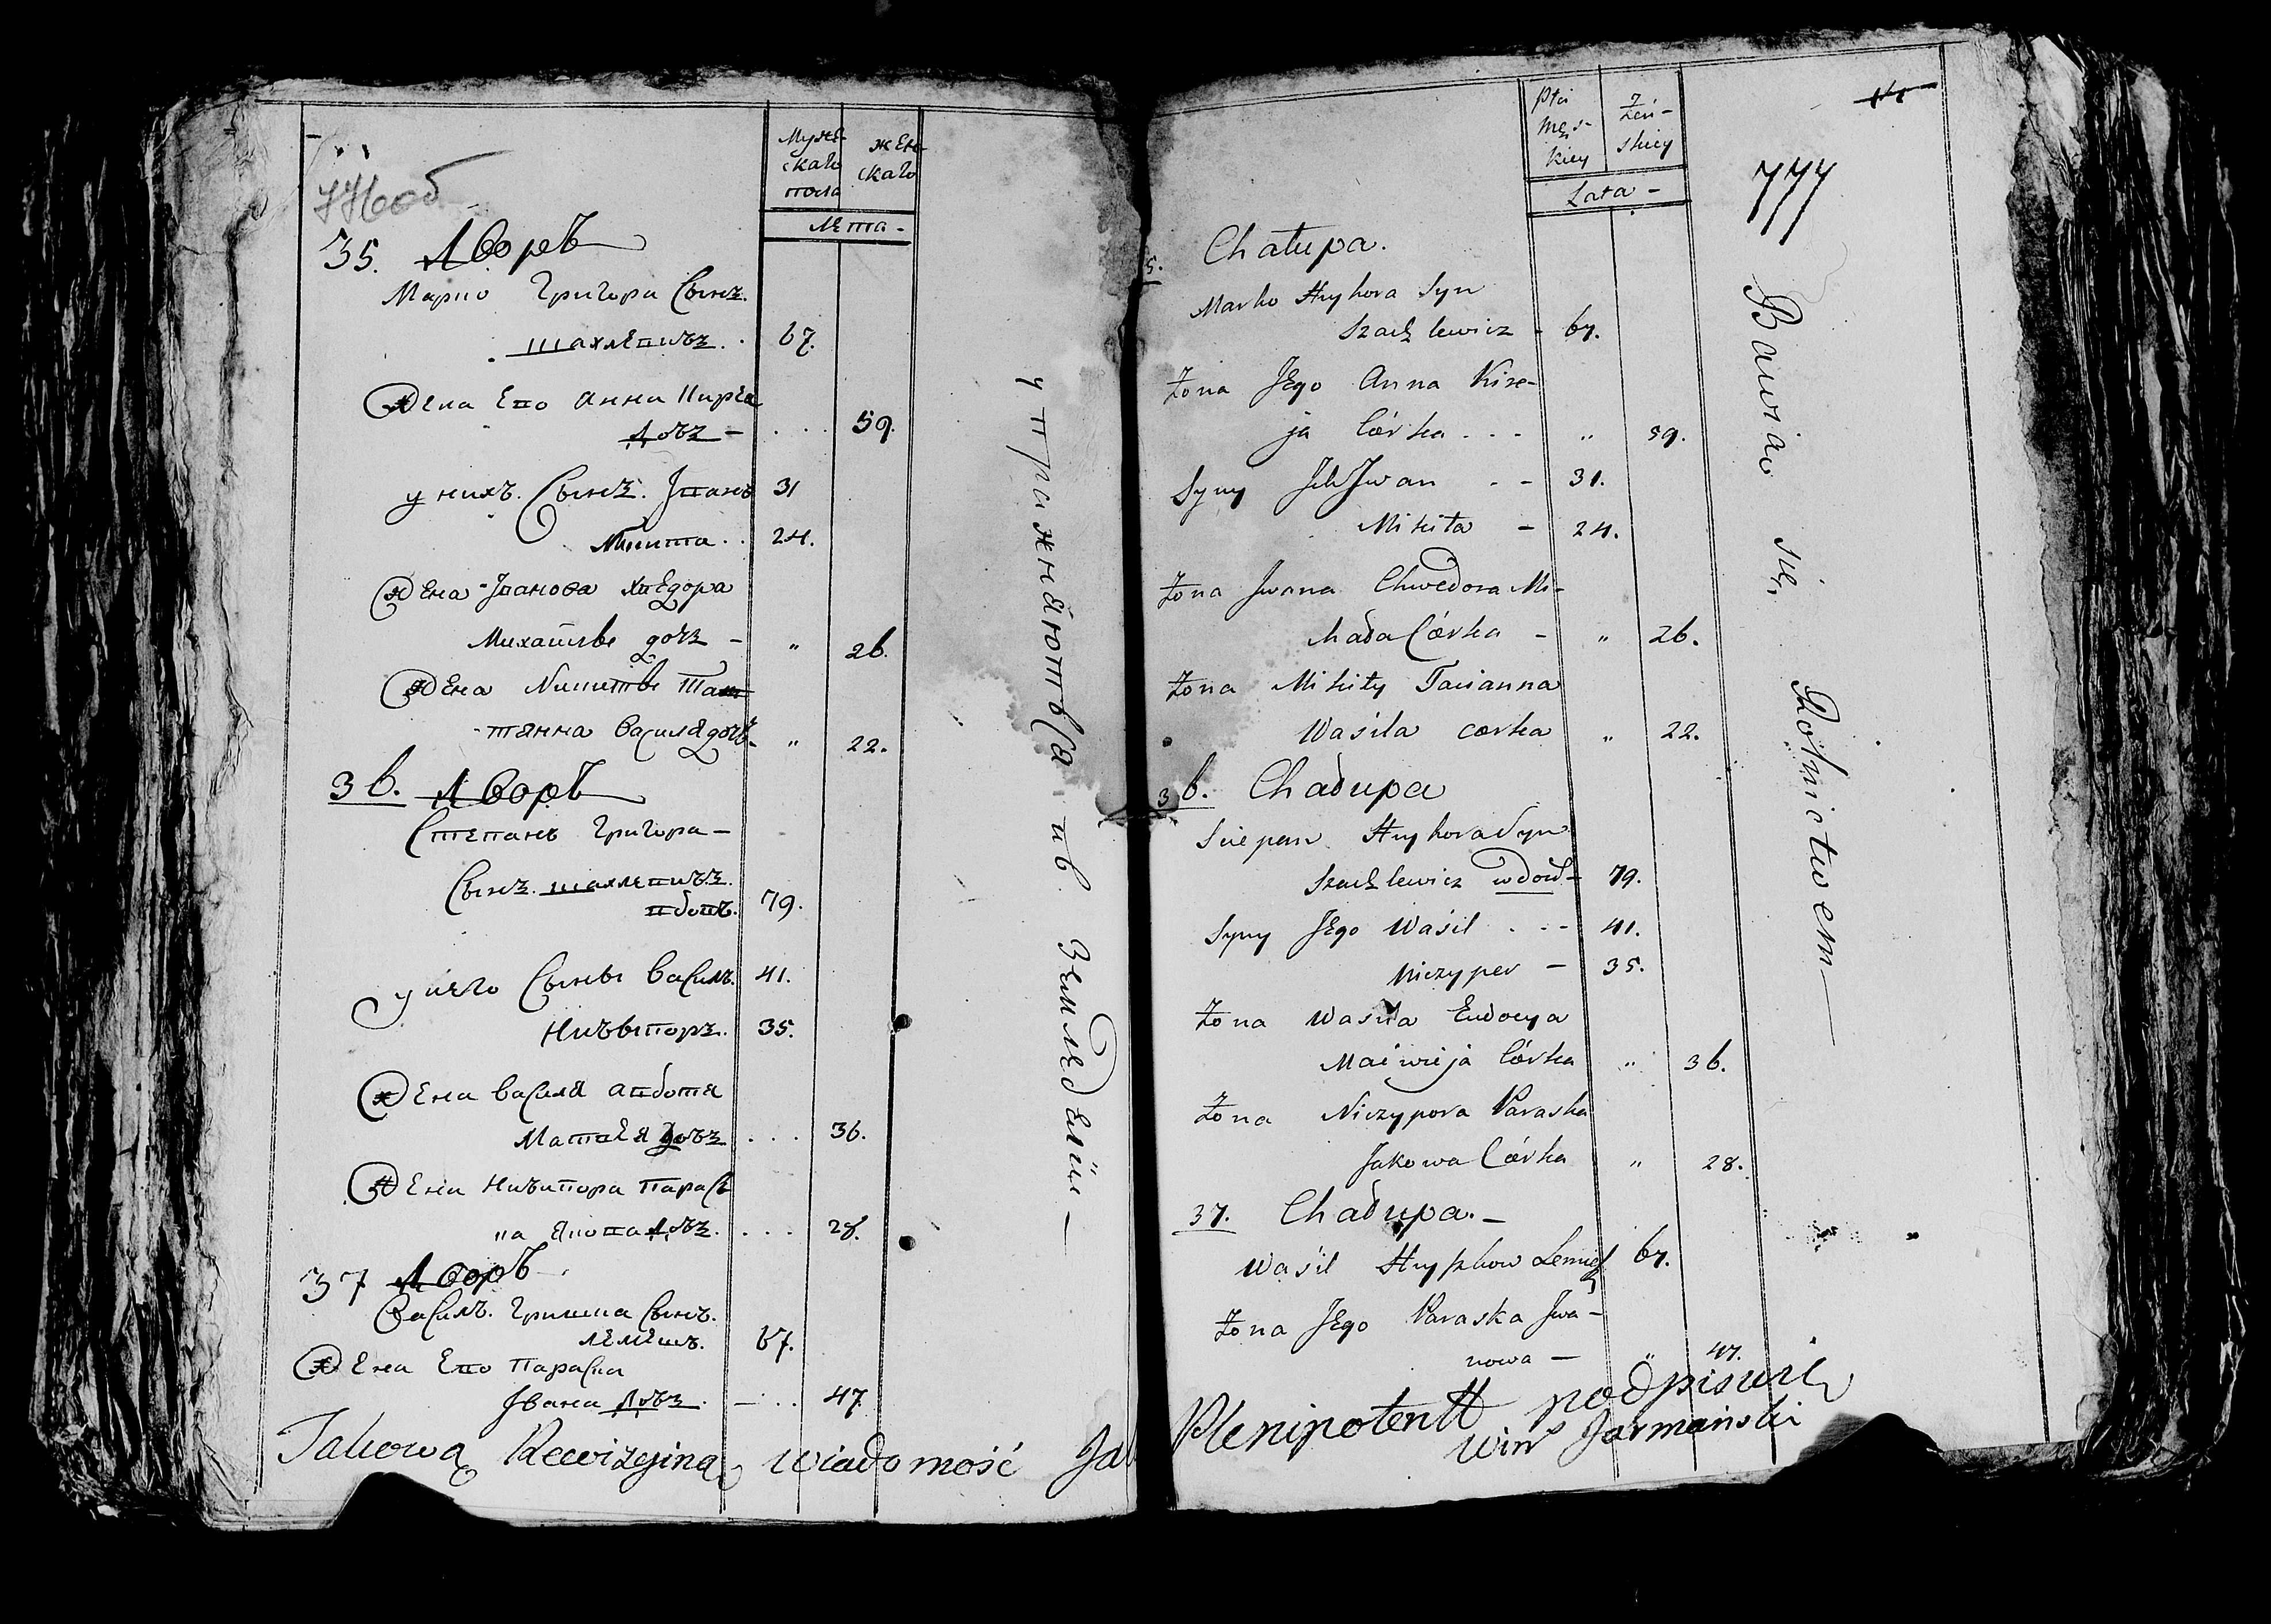 776об
Муже-
скаго
пола
жен-
скаго
Лета -
35. Дворъ
Марко Григора Сынъ.
шахлевичъ . .
67.
Жена Его Анна Кирея
дочъ -
. . . 59.
у нихъ. Сынъ. Іванъ 31
Микита . . 24.
Жена Іванова хведора
Михайлы дочъ - " 26.
Жена Микиты Тат
тянна василя дочъ - " 22.
36. Дворъ
Степанъ Григора -
Сынъ. шахлевичъ.
вдовъ. 79.
у него Сыны василь. 41.
Ничыпоръ. 35.
Жена василя авдотя
Матвея дочъ . . . 36.
Жена Ничипора Парась
ка Якова дочъ. . . . 28.
37 Дворъ
Василь. Гришка Сынъ.
лемешъ. 67.
Жена Его Параска
Івана дочъ. - . . 47.
упражняютса ив Земледелии —
Takową Rewizyjną wiadomość Ja
Płci
męs-
kiey
żeń-
skiey
Lata -
777
5. Chałupa.
Marko Hryhora Syn
Szachlewicz - 67.
Żona Jego Anna Kire-
ja Córka . . - " 59.
Syny Ich Jwan - - 31.
Mikita - 24.
Żona Jwana Chwedora Mi-
chała Córka - " 26.
Żona Mikity Tacianna
Wasila corka " 22.
36. Chałupa
Sciepan Hryhora Syn
Szachlewicz wdow - 79.
Syny Jego Waśil . . - 41.
Niczyper - 35.
Żona Wasila Eudocya
Maćwieja Córka " 36.
Żona Niczypora Paraska
Jakowa Córka " 28.
37. Chałupa. -
Waśil Hryszkow Lemiesz 67.
Żona Jego Paraska Jwa-
nowa - " 47.
Plenipotentt podpisuię
Win Jarmański
Bawiąc się Rolnictwem —